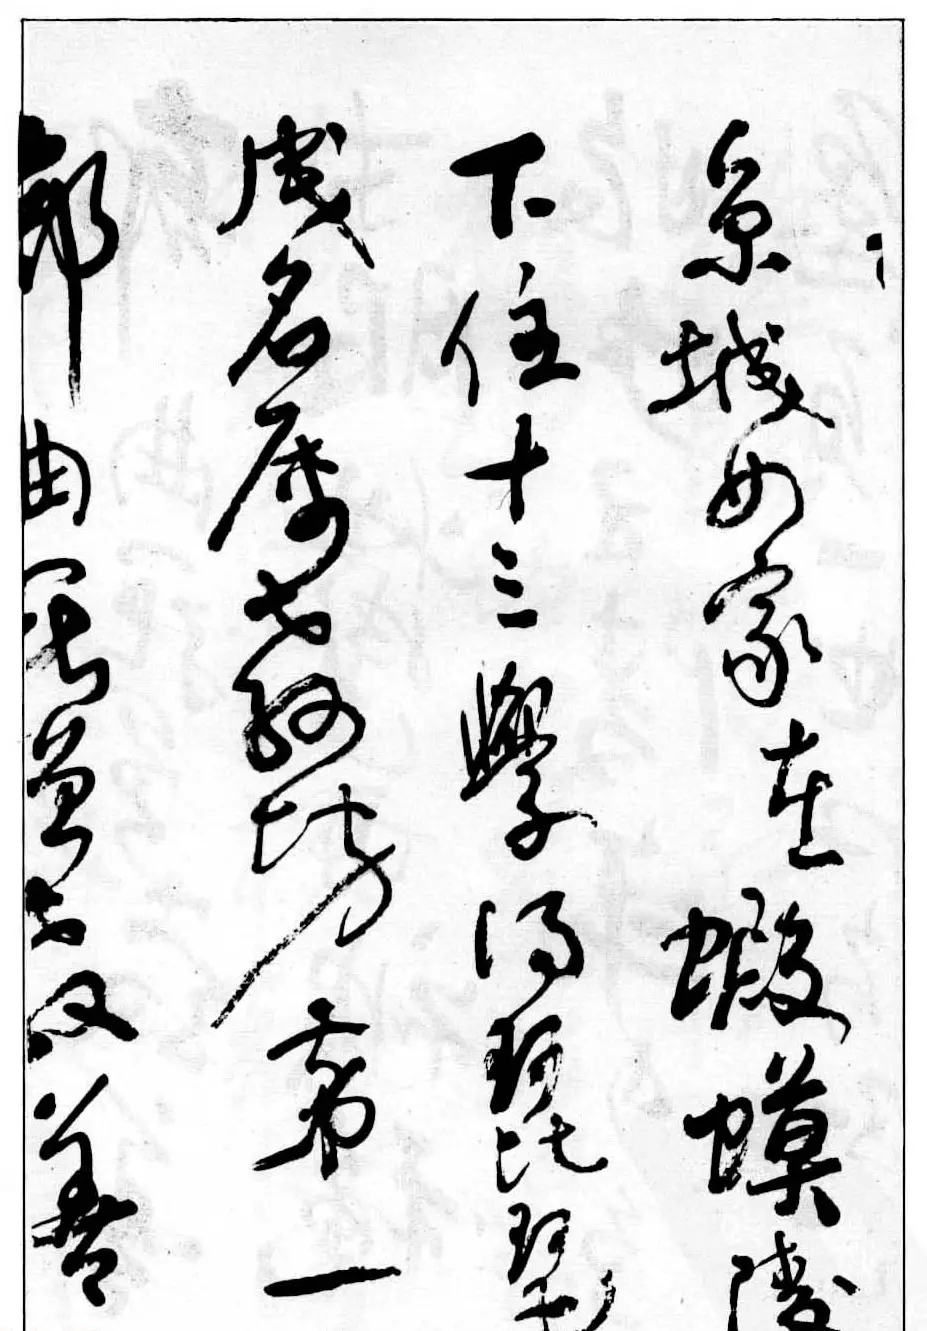 京城女家在蝦蟆陵
下住十三學得琵琶
成名屬教坊第一
部曲罷曾教善